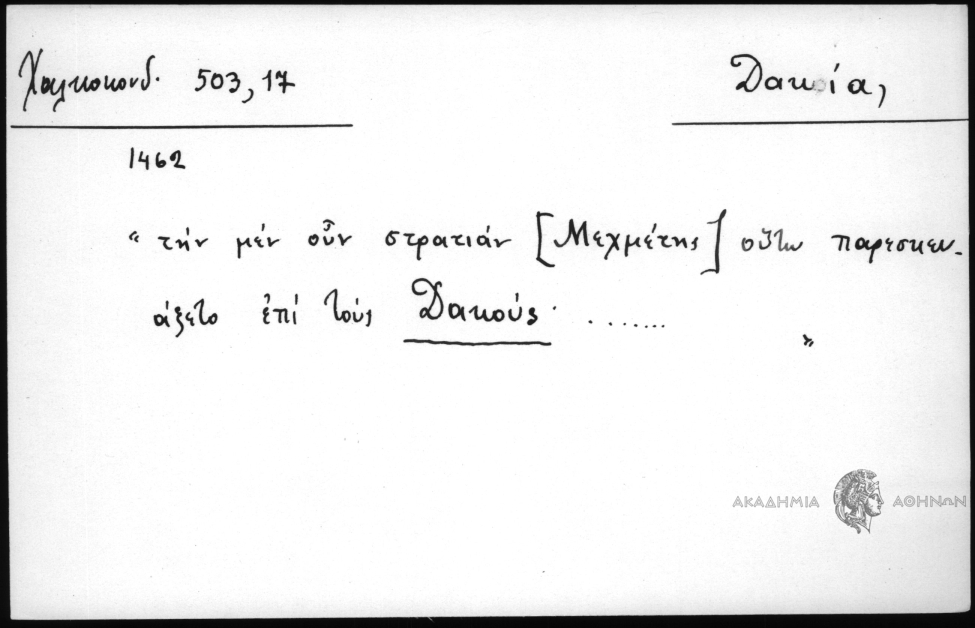 Χαλκοκονδ. 503,17
Δακία,
1462
“ τήν μέν οὖν στρατιάν [Μεχμέτης] οὕτω παρεσκευ-
άζετο ἐπί τούς Δακούς. ........ ”
ΑΚΑΔΗΜΙΑ ΑΘΗΝΩΝ